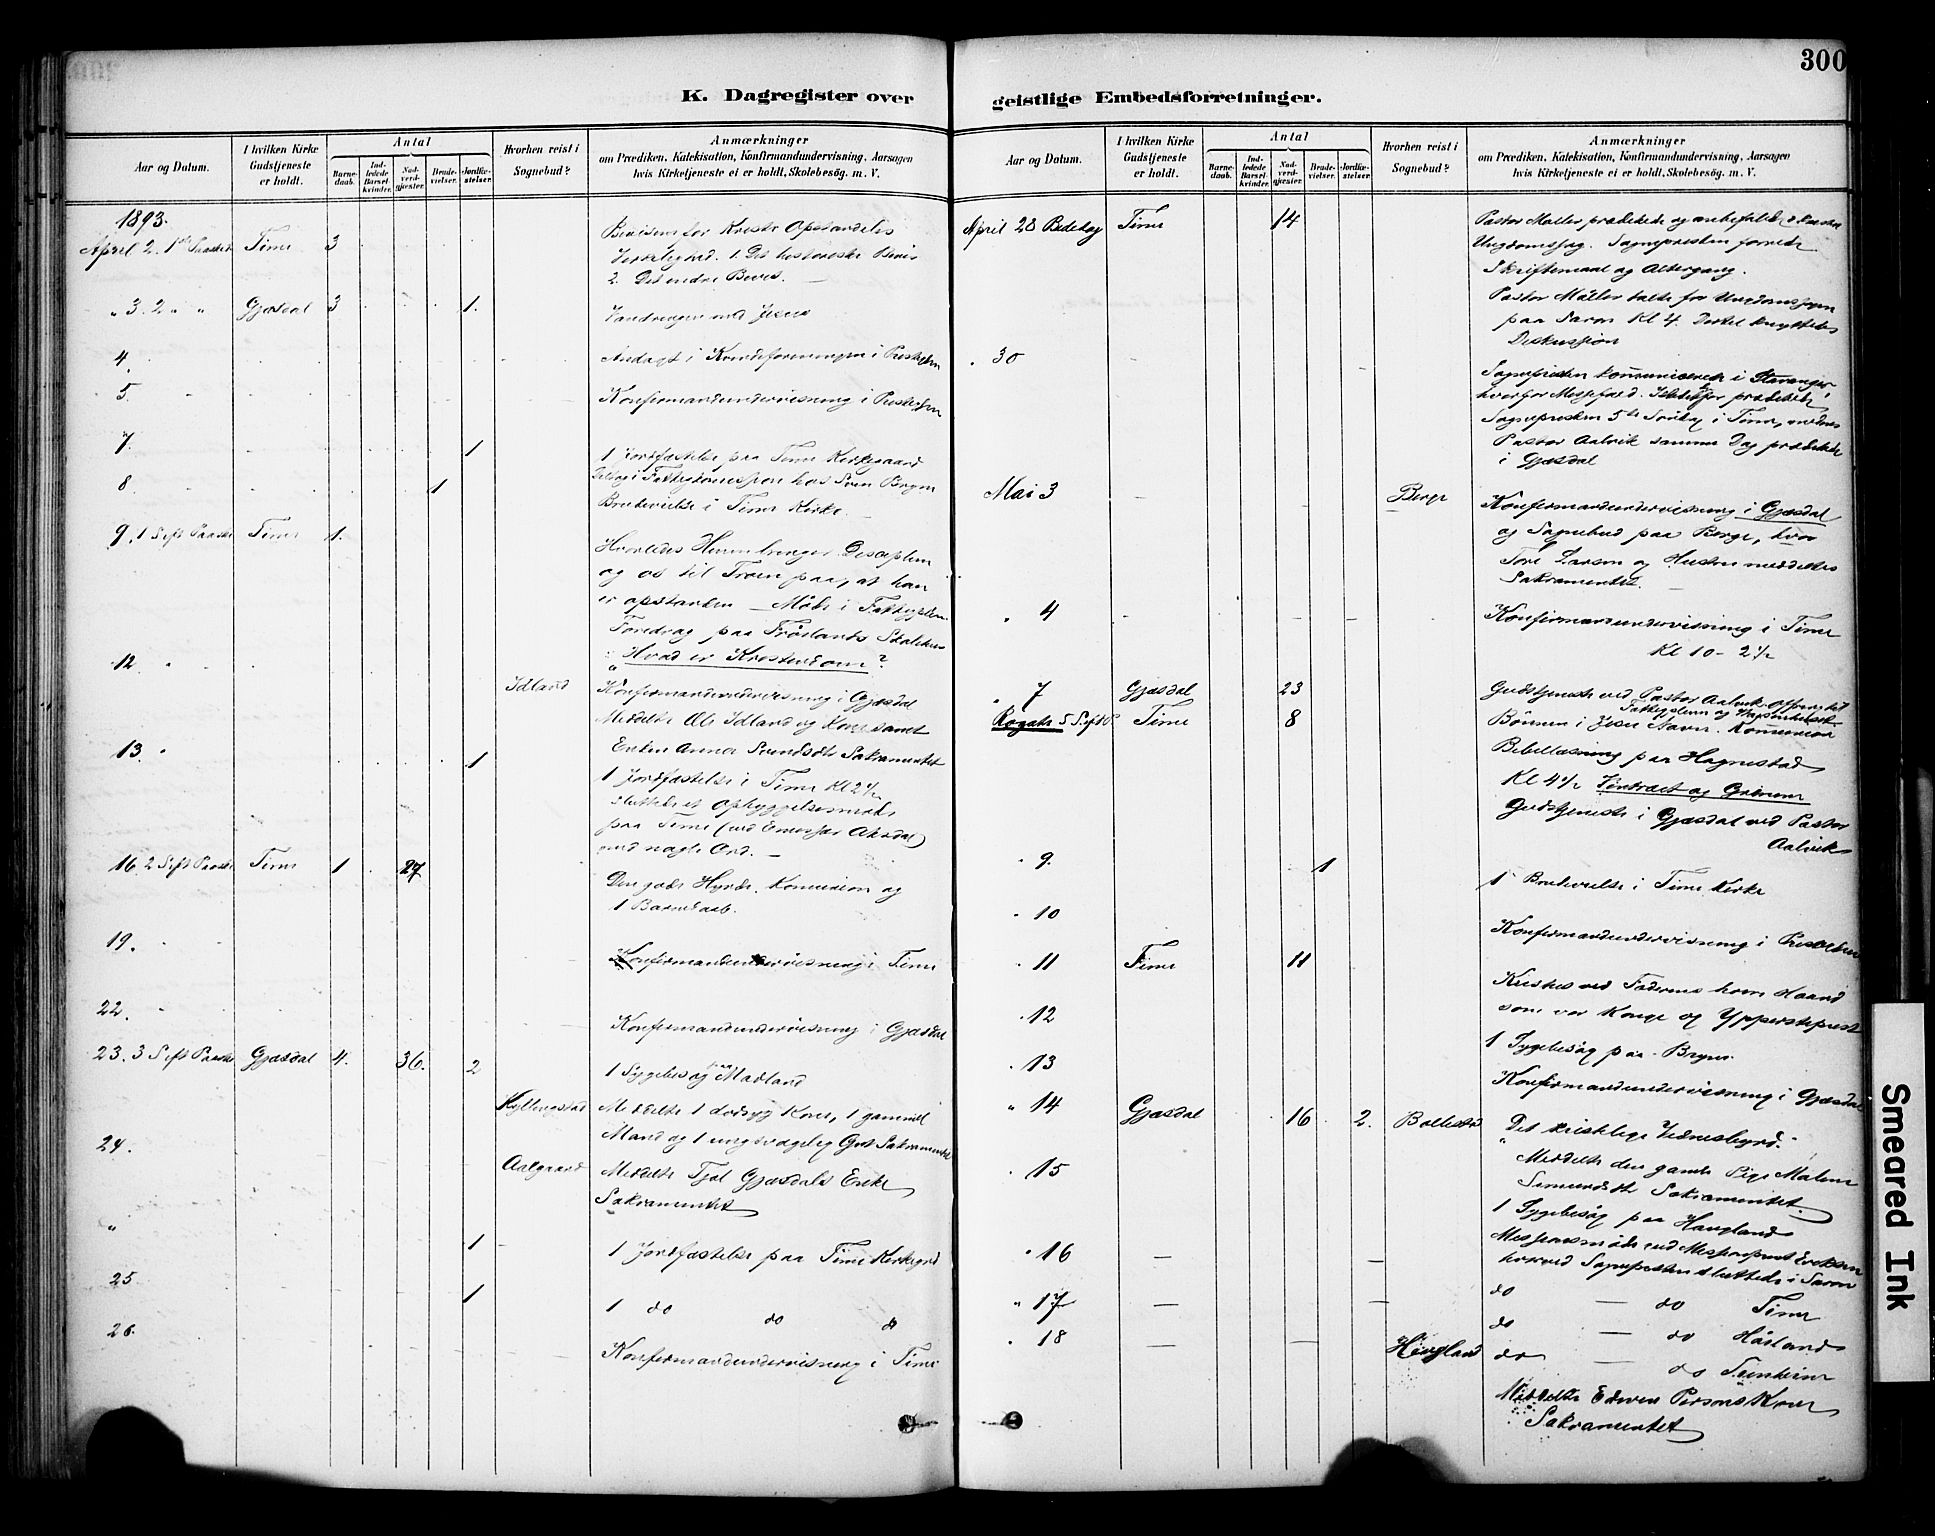 300
K. Dagregister over
geistlige Embedsforretninger.
Aar og Datum.
I hvilken Kirke Gudstjeneste er holdt.
Antal
Barnedaab.
Indledede Barselkvinder.
Nadverdgjester.
Brudevielser.
Jordfæstelser.
Hvorhen reist i Sognebud?
Anmærkninger
om Prædiken, Katekisation, Konfirmandundervisning, Aarsagen
hvis Kirketjeneste ei er holdt, Skolebesøg. m. V.
1893.
April 2. 1ste Paasked Time 3
Beviserne for Kristi Opstandelses
Virkelighed. 1. Det historiske Bevis
2. Det indre Bevis.
" 3. 2 " " Gjæsdal 3 1.
Vandringen med Jesus
4.
Andagt i Kvindeforeningen i Prestegden
5.
Konfirmandundervisning i Prestegden
7. 1
1 Jordfæstelse paa Time Kirkegaard
8. 1
i Fattigkommission hos Sven Brynn
Brudevielse i Time Kirke.
9. 1 S eft Paaske Time 1.
Hvorledes Herren bringer Disciplene
og os til Troen paa, at han
er opstanden — Møde i Fattigplein.
Foredrag paa Frøylands Skolehus
"Hvad er Kristendom"?
12 "
Idland
Konfirmandundervisning i Gjæsdal
Meddelte Ole Idland og Kone samt
Enken Anna Svendsdtr Sakramentet
13 " 1
1 Jordfæstelse i Time Kl 2½
sluttede et Opbyggelsesmøde
paa Time (ved Emissær Aksdal)
med nogle Ord.
16. 2 S eft Paaske Time 1 27
Den gode Hyrde. Komunion og
1 Barnedaab.
19.
Konfirmandundervisning i Time
22.
Konfirmandundervisning i Gjæsdal
23. 3 S eft Paaske Gjæsdal 4. 36. 2
1 Sygebesøg paa Madland
Kyllingstad
Meddelte 1 dødsyg Kone, 1 gammel
Mand og 1 ung svagelig Gut Sakramentet
24.
Aalgaard
Meddelte Tjøl Gjæsdals Enke
Sakramentet
" 1
1 Jordfæstelse paa Time Kirkegrd
25 1
1 do do do
26.
Konfirmandundervisning i Time
Aar og Datum.
I hvilken Kirke Gudstjeneste er holdt.
Antal
Barnedaab.
Indledede Barselkvinder.
Nadverdgjester.
Brudevielser.
Jordfæstelser.
Hvorhen reist i Sognebud?
Anmærkninger
om Prædiken, Katekisation, Konfirmandundervisning, Aarsagen
hvis Kirketjeneste ei er holdt, Skolebesøg. m. V.
April 28 Bededag Time 14
Pastor Møller prædikede og anbefalede
Ungdomssag. Sognepresten forrede
Skriftemaal og Altergang.
Pastor Møller talte for Ungdomssagen
paa Saron Kl 4. Dertil knyttedes
Diskussion
" 30
Sognepresten kommunicerede i Stavanger
hvorfor Messefald. Istedetfor prædikede
Sognepresten 5te Søndag i Time, medens
Pastor Aalvik samme Dag prædikede
i Gjæsdal
Mai 3 — Berge
Konfirmandundervisning i Gjæsdal
og Sognebud paa Berge, hvor
Tore Larsen og Hustru meddeltes
Sakramentet.
" 4
Konfirmandundervisning i Time
Kl 10 - 2½
" 7 Gjæsdal 23
Gudstjeneste ved Pastor Aalvik
Rogate 5 S eft P. Time 8
Bønnen i Jesu Navn. Komunion
Bibellæsning paa Hognestad
Kl 4½
Gudstjeneste i Gjæsdal ved Pastor
Aalvik
" 9. 1
1 Brudevielse i Time Kirke
" 10
Konfirmandundervisning i Prestegden
" 11 Time 11
Kristus ved Faderens høire Haand
som vor Konge og Yppersteprest
" 12
1 Sygebesøg paa Bryne
" 13
Konfirmandundervisning i Gjæsdal
" 14 Gjæsdal 16 2. Bollestad
Det kristelige Vidnesbyrd.
Meddelte den gamle Pige Malene
Simundsdtr Sakramentet.
" 15
1 Sygebesøg paa Haugland
" 16 — —
Missionsmøde ved Missionsprest Eriksen
hvorved Sognepresten sluttede i Saron
" 17 — —
do — do Time
" 18 — —
do — do Håland
Høigland
do — do Tunheim
Meddelte Edvin Persons Kone
Sakramentet
Smeared Ink